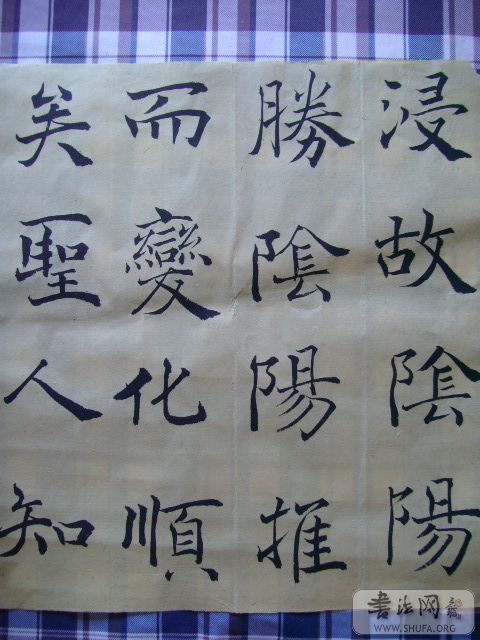 浸故陰陽
勝陰陽推
而變化順
矣聖人知
書法网
WWW.SHUFA.ORG